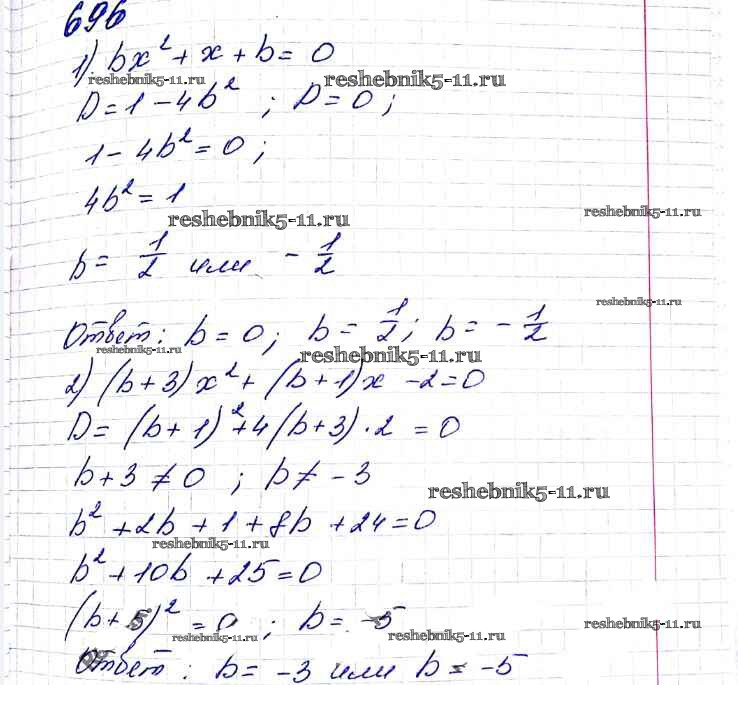 696
1) bx² + x + b = 0
reshebnik5-11.ru reshebnik5-11.ru
D = 1 - 4b² ; D = 0 ;
1 - 4b² = 0 ;
4b² = 1
reshebnik5-11.ru reshebnik5-11.ru
b = 1/2 или - 1/2
reshebnik5-11.ru
Ответ: b = 0 ; b = 1/2 ; b = - 1/2
reshebnik5-11.ru reshebnik5-11.ru
2) (b + 3)x² + (b + 1)x - 2 = 0
D = (b + 1)² + 4(b + 3) · 2 = 0
b + 3 ≠ 0 ; b ≠ -3
reshebnik5-11.ru
b² + 2b + 1 + 8b + 24 = 0
reshebnik5-11.ru
b² + 10b + 25 = 0
(b + 5)² = 0 ; b = -5
reshebnik5-11.ru reshebnik5-11.ru reshebnik5-11.ru
Ответ : b = -3 или b = -5